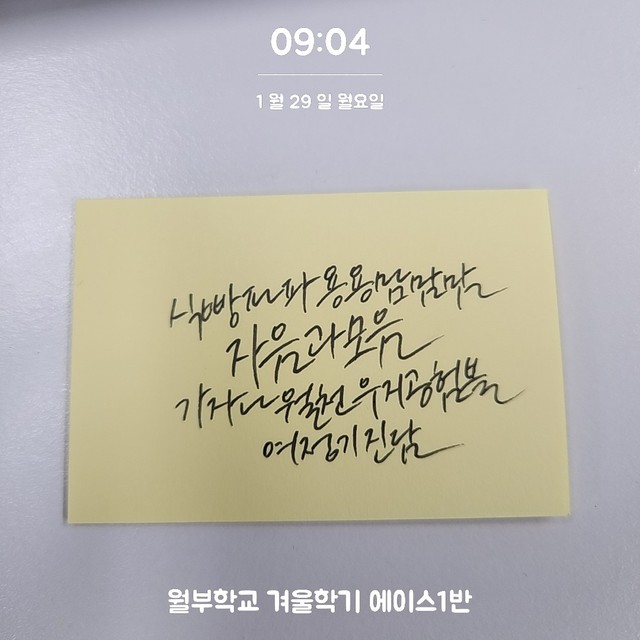 09:04
1월 29일 월요일
식빵파파 용용맘맘맘
자음과모음
가자나 월천 우지공 험블
여정기진담
월부학교 겨울학기 에이스1반